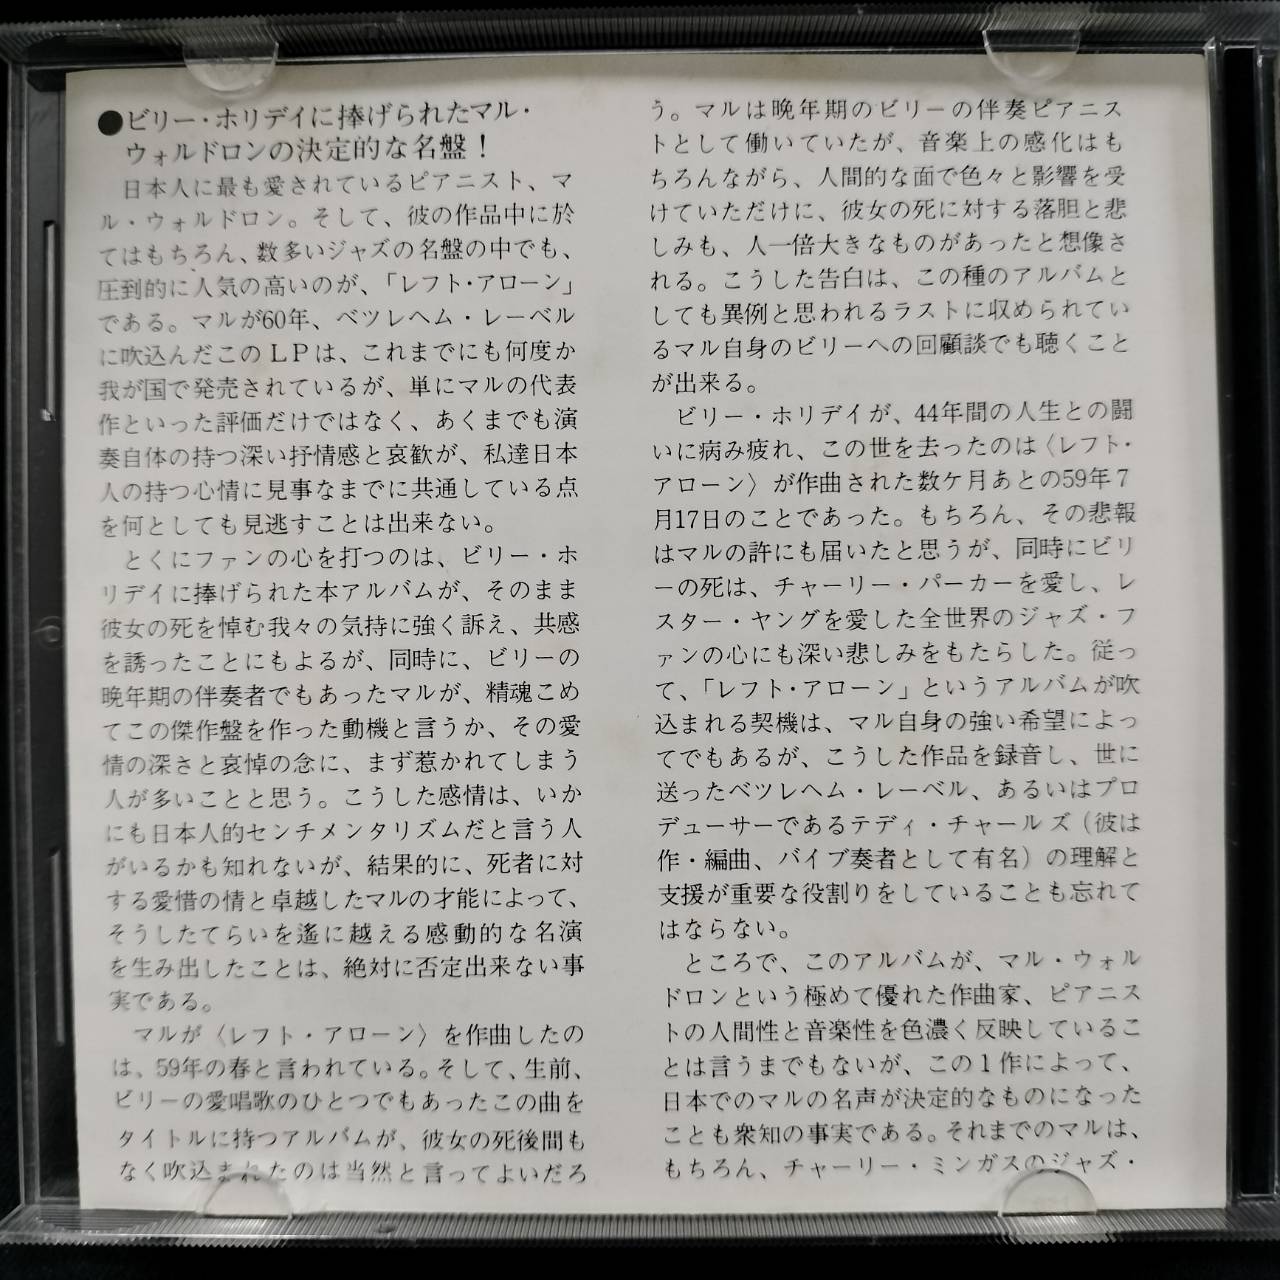 ●ビリー・ホリデイに捧げられたマル・
ウォルドロンの決定的な名盤！
日本人に最も愛されているピアニスト、マ
ル・ウォルドロン。そして、彼の作品中に於
てはもちろん、数多いジャズの名盤の中でも、
圧到的に人気の高いのが、「レフト・アローン」
である。マルが60年、ベツレヘム・レーベル
に吹込んだこのＬＰは、これまでにも何度か
我が国で発売されているが、単にマルの代表
作といった評価だけではなく、あくまでも演
奏自体の持つ深い抒情感と哀歓が、私達日本
人の持つ心情に見事なまでに共通している点
を何としても見逃すことは出来ない。
とくにファンの心を打つのは、ビリー・ホ
リデイに捧げられた本アルバムが、そのまま
彼女の死を悼む我々の気持に強く訴え、共感
を誘ったことにもよるが、同時に、ビリーの
晩年期の伴奏者でもあったマルが、精魂こめ
てこの傑作盤を作った動機と言うか、その愛
情の深さと哀悼の念に、まず惹かれてしまう
人が多いことと思う。こうした感情は、いか
にも日本人的センチメンタリズムだと言う人
がいるかも知れないが、結果的に、死者に対
する愛惜の情と卓越したマルの才能によって、
そうしたてらいを遙に越える感動的な名演
を生み出したことは、絶対に否定出来ない事
実である。
マルが〈レフト・アローン〉を作曲したの
は、59年の春と言われている。そして、生前、
ビリーの愛唱歌のひとつでもあったこの曲を
タイトルに持つアルバムが、彼女の死後間も
なく吹込まれたのは当然と言ってよいだろ
う。マルは晩年期のビリーの伴奏ピアニス
トとして働いていたが、音楽上の感化はも
ちろんながら、人間的な面で色々と影響を受
けていただけに、彼女の死に対する落胆と悲
しみも、人一倍大きなものがあったと想像さ
れる。こうした告白は、この種のアルバムと
しても異例と思われるラストに収められてい
るマル自身のビリーへの回顧談でも聴くこと
が出来る。
ビリー・ホリデイが、44年間の人生との闘
いに病み疲れ、この世を去ったのは〈レフト・
アローン〉が作曲された数ケ月あとの59年７
月17日のことであった。もちろん、その悲報
はマルの許にも届いたと思うが、同時にビリ
ーの死は、チャーリー・パーカーを愛し、レ
スター・ヤングを愛した全世界のジャズ・フ
ァンの心にも深い悲しみをもたらした。従っ
て、「レフト・アローン」というアルバムが吹
込まれる契機は、マル自身の強い希望によっ
てでもあるが、こうした作品を録音し、世に
送ったベツレヘム・レーベル、あるいはプロ
デューサーであるテディ・チャールズ（彼は
作・編曲、バイブ奏者として有名）の理解と
支援が重要な役割りをしていることも忘れて
はならない。
ところで、このアルバムが、マル・ウォル
ドロンという極めて優れた作曲家、ピアニス
トの人間性と音楽性を色濃く反映しているこ
とは言うまでもないが、この１作によって、
日本でのマルの名声が決定的なものになった
ことも衆知の事実である。それまでのマルは、
もちろん、チャーリー・ミンガスのジャズ・